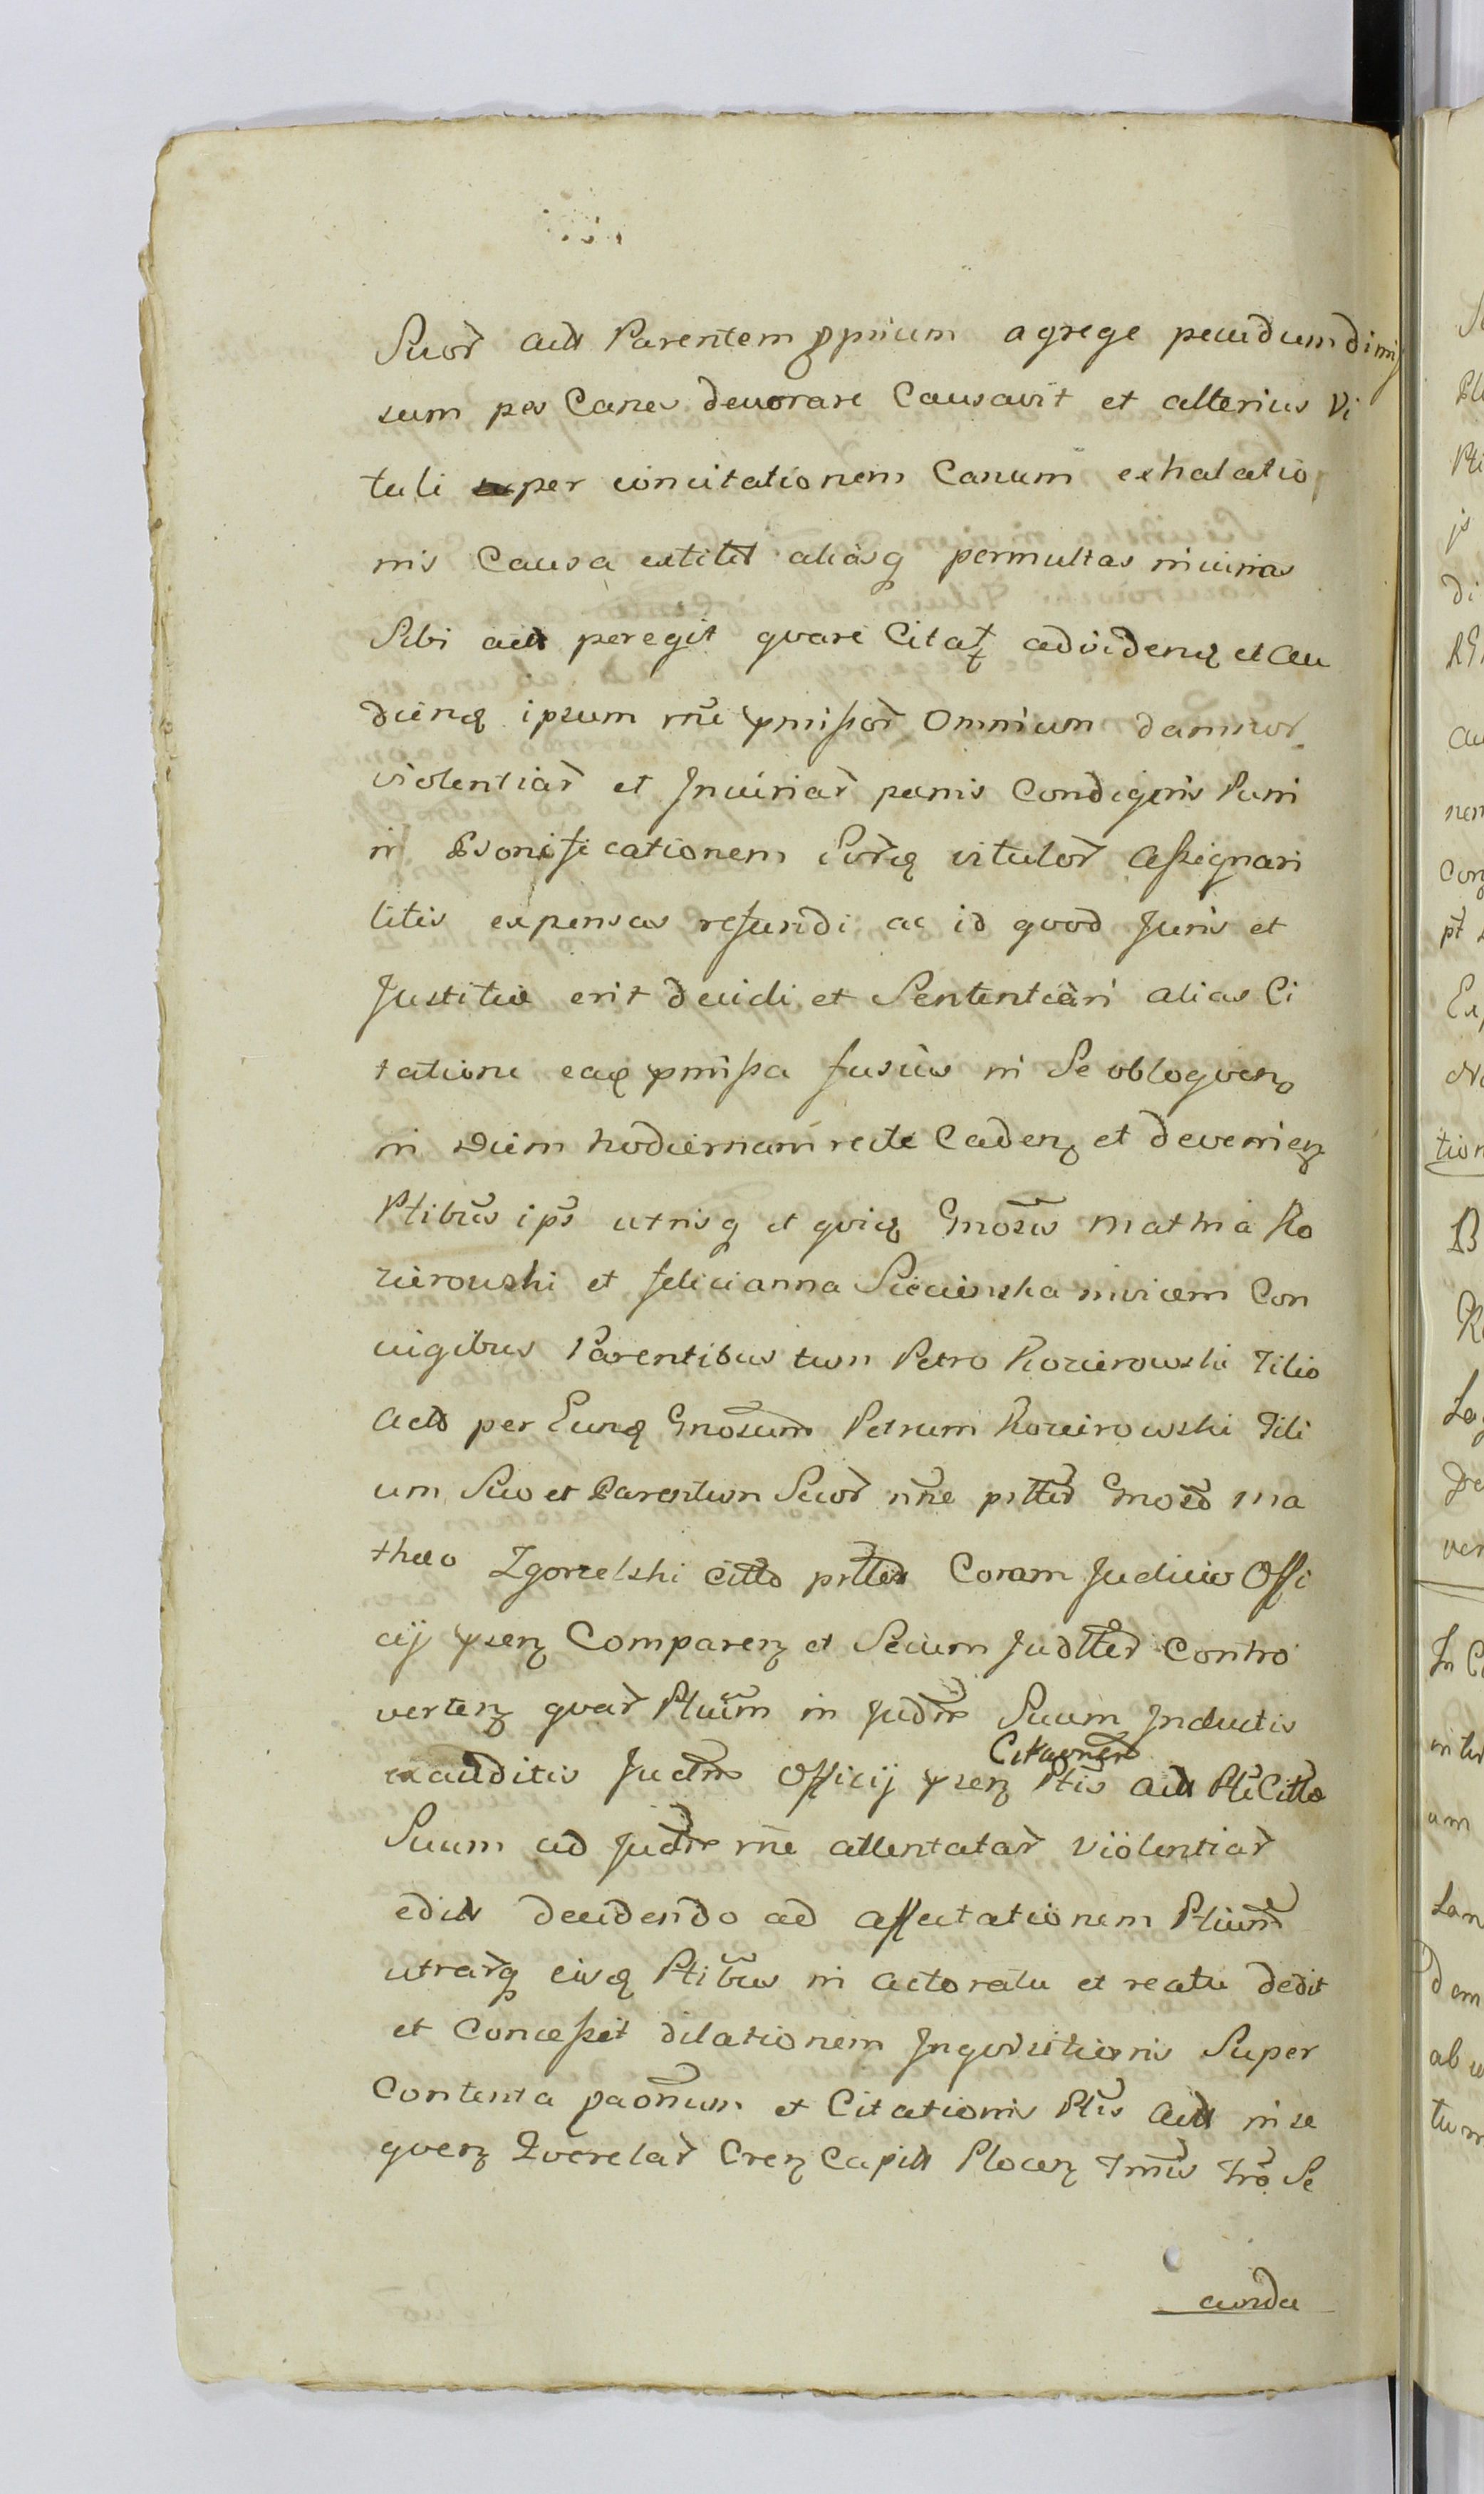 Suor̃ Acti Parentem ꝓprium a grege pecudum dimi
sum per Canes devorare Causavit et alterius Vi
tuli per concitationem Canum exhalatio
nis Causa extitit aliasq permultas iniurias
Sibi acti peregit qvare Citatꝫ ad videnꝫ et au
dienꝫ ipsum rñe pmissor̃ Omnium damnor̃
violentiar̃ et Iniuriar̃ penis Condignis Puni
in Bonificationem vitulor̃ Assignari
litis expensas refundi ac id qvod Juris et
Justitiæ erit decidi et Sententiari alias Ci
tatione eaꝗ pmissa fusius in Se obloqvenꝫ
in Diem hodiernam recte Cadenꝫ et devenienꝫ
Ptibus ips̃ utrisq et Gñosis Mathia Ro
zierowski et Felicianna Sieciunska invicem Con
iugibus Parentibus tum Petro Rozierowski Filio
Acto per Eunꝗ Gñosum Petrum Rozierowski Fili
um Suo et Parentum Suor̃ rñe prtter Gñoso Ma
theo Zgorzelski Citto prtter Coram Judicio Offi
cij pꝫenꝫ Comparenꝫ et Secum Judtter Contro
vertenꝫ qvar̃ Ptium in Judm̃ Suum Inductis
exauditis Judm̃ Officij pꝫenꝫ Ptis Citationem Acti Pti Citto
Suum ad Judm̃ rñe attentatar̃ Violentiar̃
edit decidendo ad affectationem Ptium
utrarq eisꝗ Ptibus in actoratu et reatu dedit
et Concessit dilationem Inqvisitionis Super
Contenta paonum et Citationis Ptis Acti in se
qvenꝫ Qverelar̃ Crenꝫ Capitt Plocenꝫ Tmis Tro Se
cunda